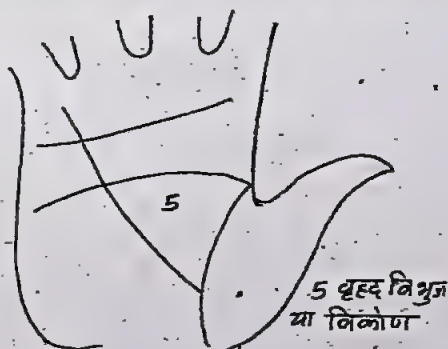 5
5 वृहद त्रिभुज
या त्रिकोण